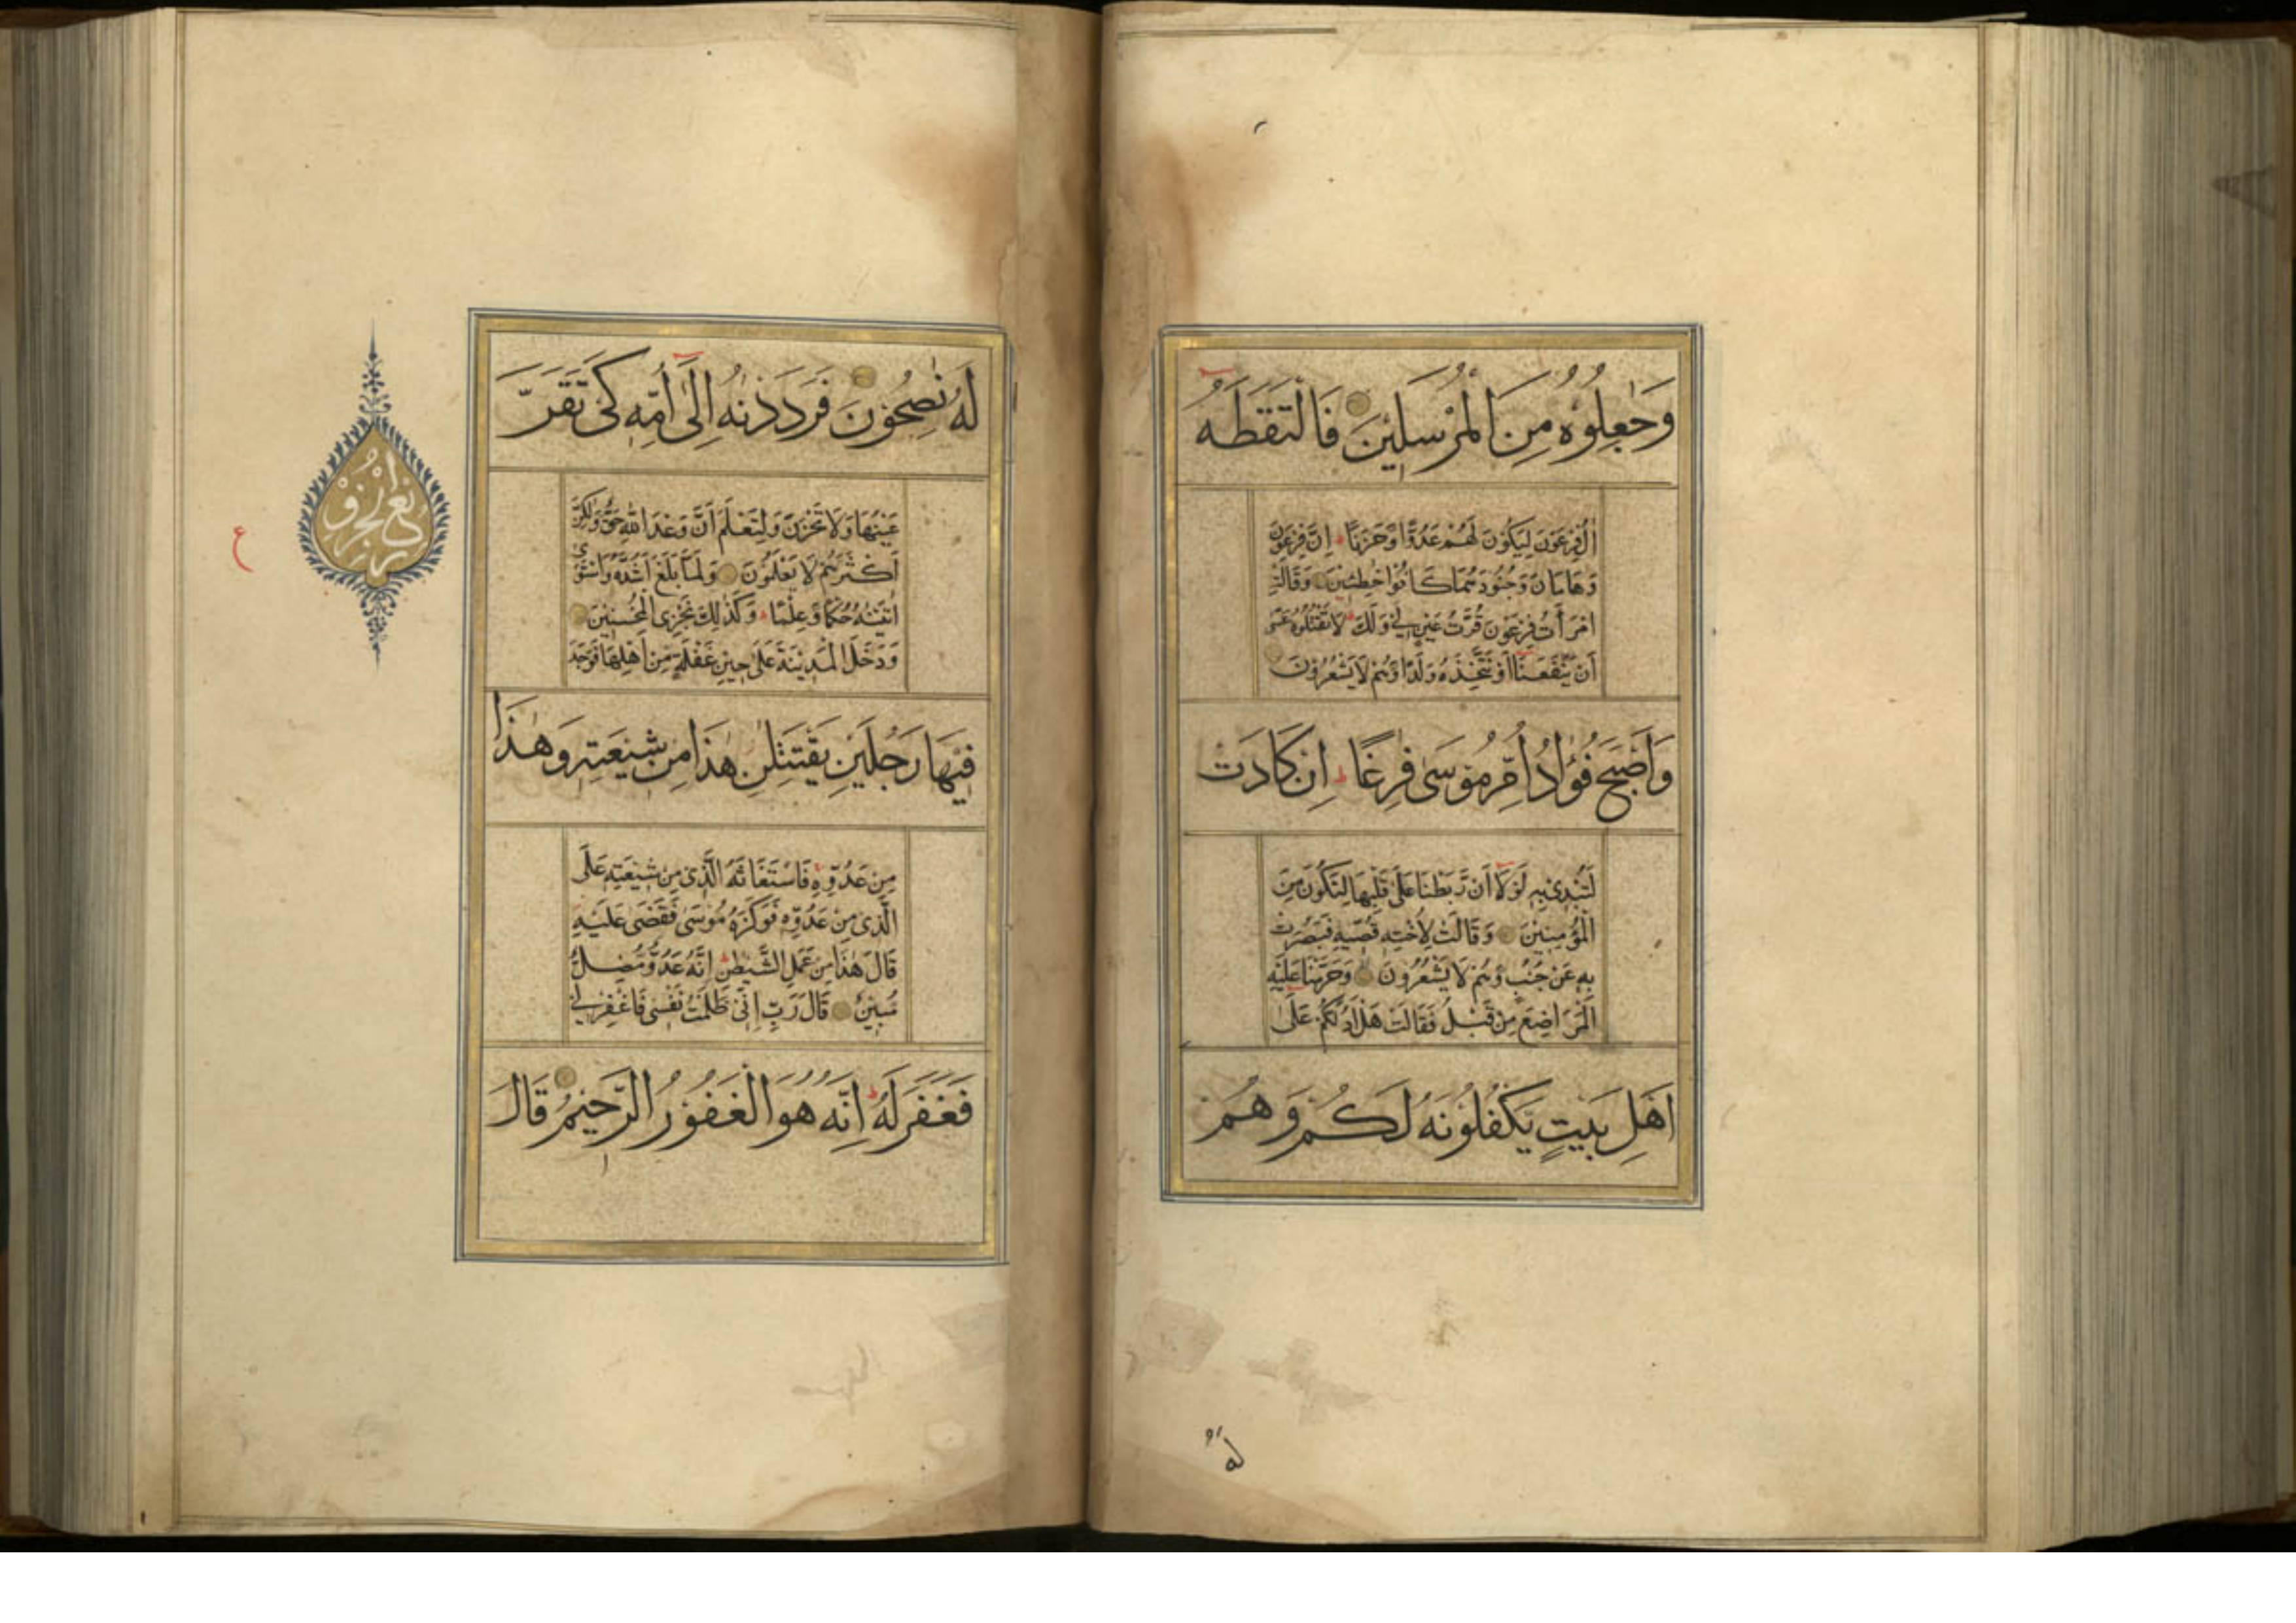 وَجٰعِلُوْهُ مِنَ الْمُرْسَلِيْنَ فَالْتَقَطَهٗ
اٰلُ فِرْعَوْنَ لِيَكُوْنَ لَهُمْ عَدُوًّا وَّحَزَنًا ط اِنَّ فِرْعَوْنَ
وَهَامَانَ وَجُنُوْدَهُمَا كَانُوْا خٰطِئِيْنَ وَقَالَتِ
امْرَأَتُ فِرْعَوْنَ قُرَّتُ عَيْنٍ لِّيْ وَلَكَ ط لَا تَقْتُلُوْهُ عَسٰى
اَنْ يَّنْفَعَنَا اَوْ نَتَّخِذَهٗ وَلَدًا وَّهُمْ لَا يَشْعُرُوْنَ
وَاَصْبَحَ فُؤَادُ اُمِّ مُوْسٰى فٰرِغًا ط اِنْ كَادَتْ
لَتُبْدِيْ بِهٖ لَوْلَا اَنْ رَّبَطْنَا عَلٰى قَلْبِهَا لِتَكُوْنَ مِنَ
الْمُؤْمِنِيْنَ وَقَالَتْ لِاُخْتِهٖ قُصِّيْهِ فَبَصُرَتْ
بِهٖ عَنْ جُنُبٍ وَّهُمْ لَا يَشْعُرُوْنَ وَحَرَّمْنَا عَلَيْهِ
الْمَرَاضِعَ مِنْ قَبْلُ فَقَالَتْ هَلْ اَدُلُّكُمْ عَلٰى
اَهْلِ بَيْتٍ يَّكْفُلُوْنَهٗ لَكُمْ وَهُمْ
لَهٗ
لَهٗ نٰصِحُوْنَ فَرَدَدْنٰهُ اِلٰى اُمِّهٖ كَيْ تَقَرَّ
عَيْنُهَا وَلَا تَحْزَنَ وَلِتَعْلَمَ اَنَّ وَعْدَ اللّٰهِ حَقٌّ وَّلٰكِنَّ
اَكْثَرَهُمْ لَا يَعْلَمُوْنَ وَلَمَّا بَلَغَ اَشُدَّهٗ وَاسْتَوٰى
اٰتَيْنٰهُ حُكْمًا وَّعِلْمًا ط وَكَذٰلِكَ نَجْزِي الْمُحْسِنِيْنَ
وَدَخَلَ الْمَدِيْنَةَ عَلٰى حِيْنِ غَفْلَةٍ مِّنْ اَهْلِهَا فَوَجَدَ
فِيْهَا رَجُلَيْنِ يَقْتَتِلٰنِ هٰذَا مِنْ شِيْعَتِهٖ وَهٰذَا
مِنْ عَدُوِّهٖ فَاسْتَغَاثَهُ الَّذِيْ مِنْ شِيْعَتِهٖ عَلَى
الَّذِيْ مِنْ عَدُوِّهٖ فَوَكَزَهٗ مُوْسٰى فَقَضٰى عَلَيْهِ
قَالَ هٰذَا مِنْ عَمَلِ الشَّيْطٰنِ ط اِنَّهٗ عَدُوٌّ مُّضِلٌّ
مُّبِيْنٌ قَالَ رَبِّ اِنِّيْ ظَلَمْتُ نَفْسِيْ فَاغْفِرْ لِيْ
فَغَفَرَ لَهٗ ط اِنَّهٗ هُوَ الْغَفُوْرُ الرَّحِيْمُ قَالَ
ع